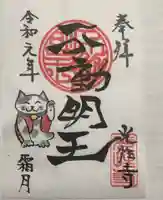 奉拝
不動明王
令和元年
霜月